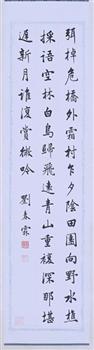 弭棹危橋外霜村乍夕陰田園向野水樵
採語空林白鳥歸飛遠青山重複深那堪
遲新月誰復賞微吟 劉春霖